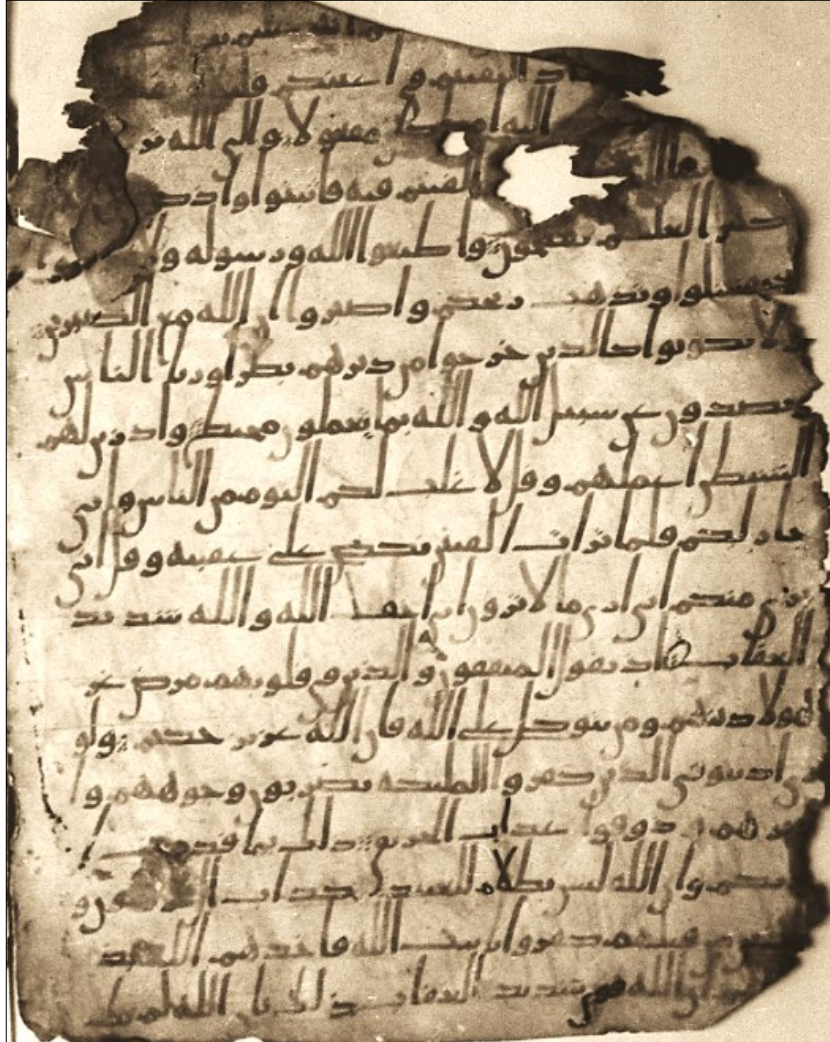 التقيتم في اعينكم قليلا
الله امرا كان مفعولا والى الله تر
لقيتم فيه فاثبتوا واذكر
كثيرا لعلكم تفلحون واطيعوا الله ورسوله ولا
فتفشلوا وتذهب ريحكم واصبروا ان الله مع الصبرين
ولا تكونوا كالذين خرجوا من ديرهم بطرا وريا الناس
ويصدون عن سبيل الله والله بما يعملون محيط واذ زين لهم
الشيطن اعملهم وقل لا غلب لكم اليوم من الناس واني
جار لكم فلما ترات الفيتن نكص على عقبيه وقل اني
بري منكم اني ارى ما لا ترون اني اخف الله والله شديد
العقاب اذ يقول المنفقون والذين في قلوبهم مرض غر
هولا دينهم ومن يتوكل على الله فان الله عزيز حكيم ولو
ترى اذ يتوفى الذين كفروا المليكة يضربون وجوههم و
ادبرهم وذوقوا عذاب الحريق ذلك بما قدمت
ايديكم وان الله ليس بظلم للعبيد كداب ال فرعون و
الذين من قبلهم كفروا بايت الله فاخذهم الله بذ
ان الله قوي شديد العقاب ذلك بان الله لم يك